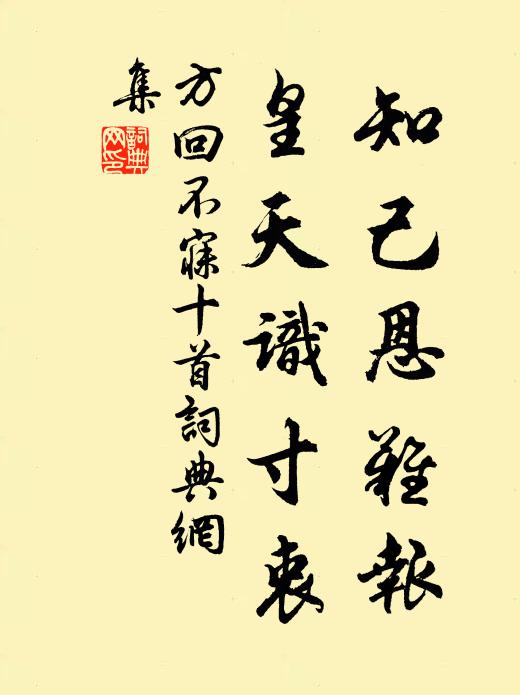 知己恩難報
皇天識寸衷
方回不寐十首詞典網
集
詞典
网印